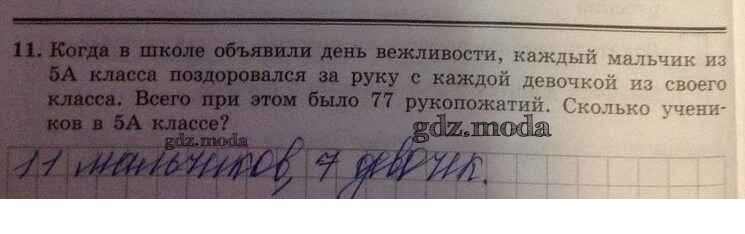 11. Когда в школе объявили день вежливости, каждый мальчик из
5А класса поздоровался за руку с каждой девочкой из своего
класса. Всего при этом было 77 рукопожатий. Сколько учени-
ков в 5А классе?
gdz.moda
gdz.moda
11 мальчиков, 7 девочек.